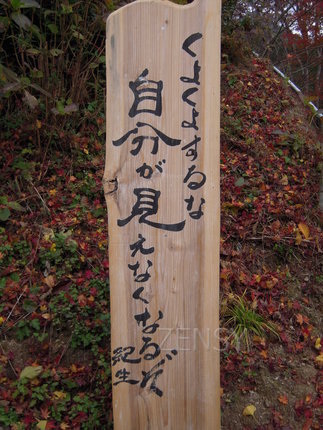 くよくよするな
自分が見えなくなるぞ
紀生
ZENSI